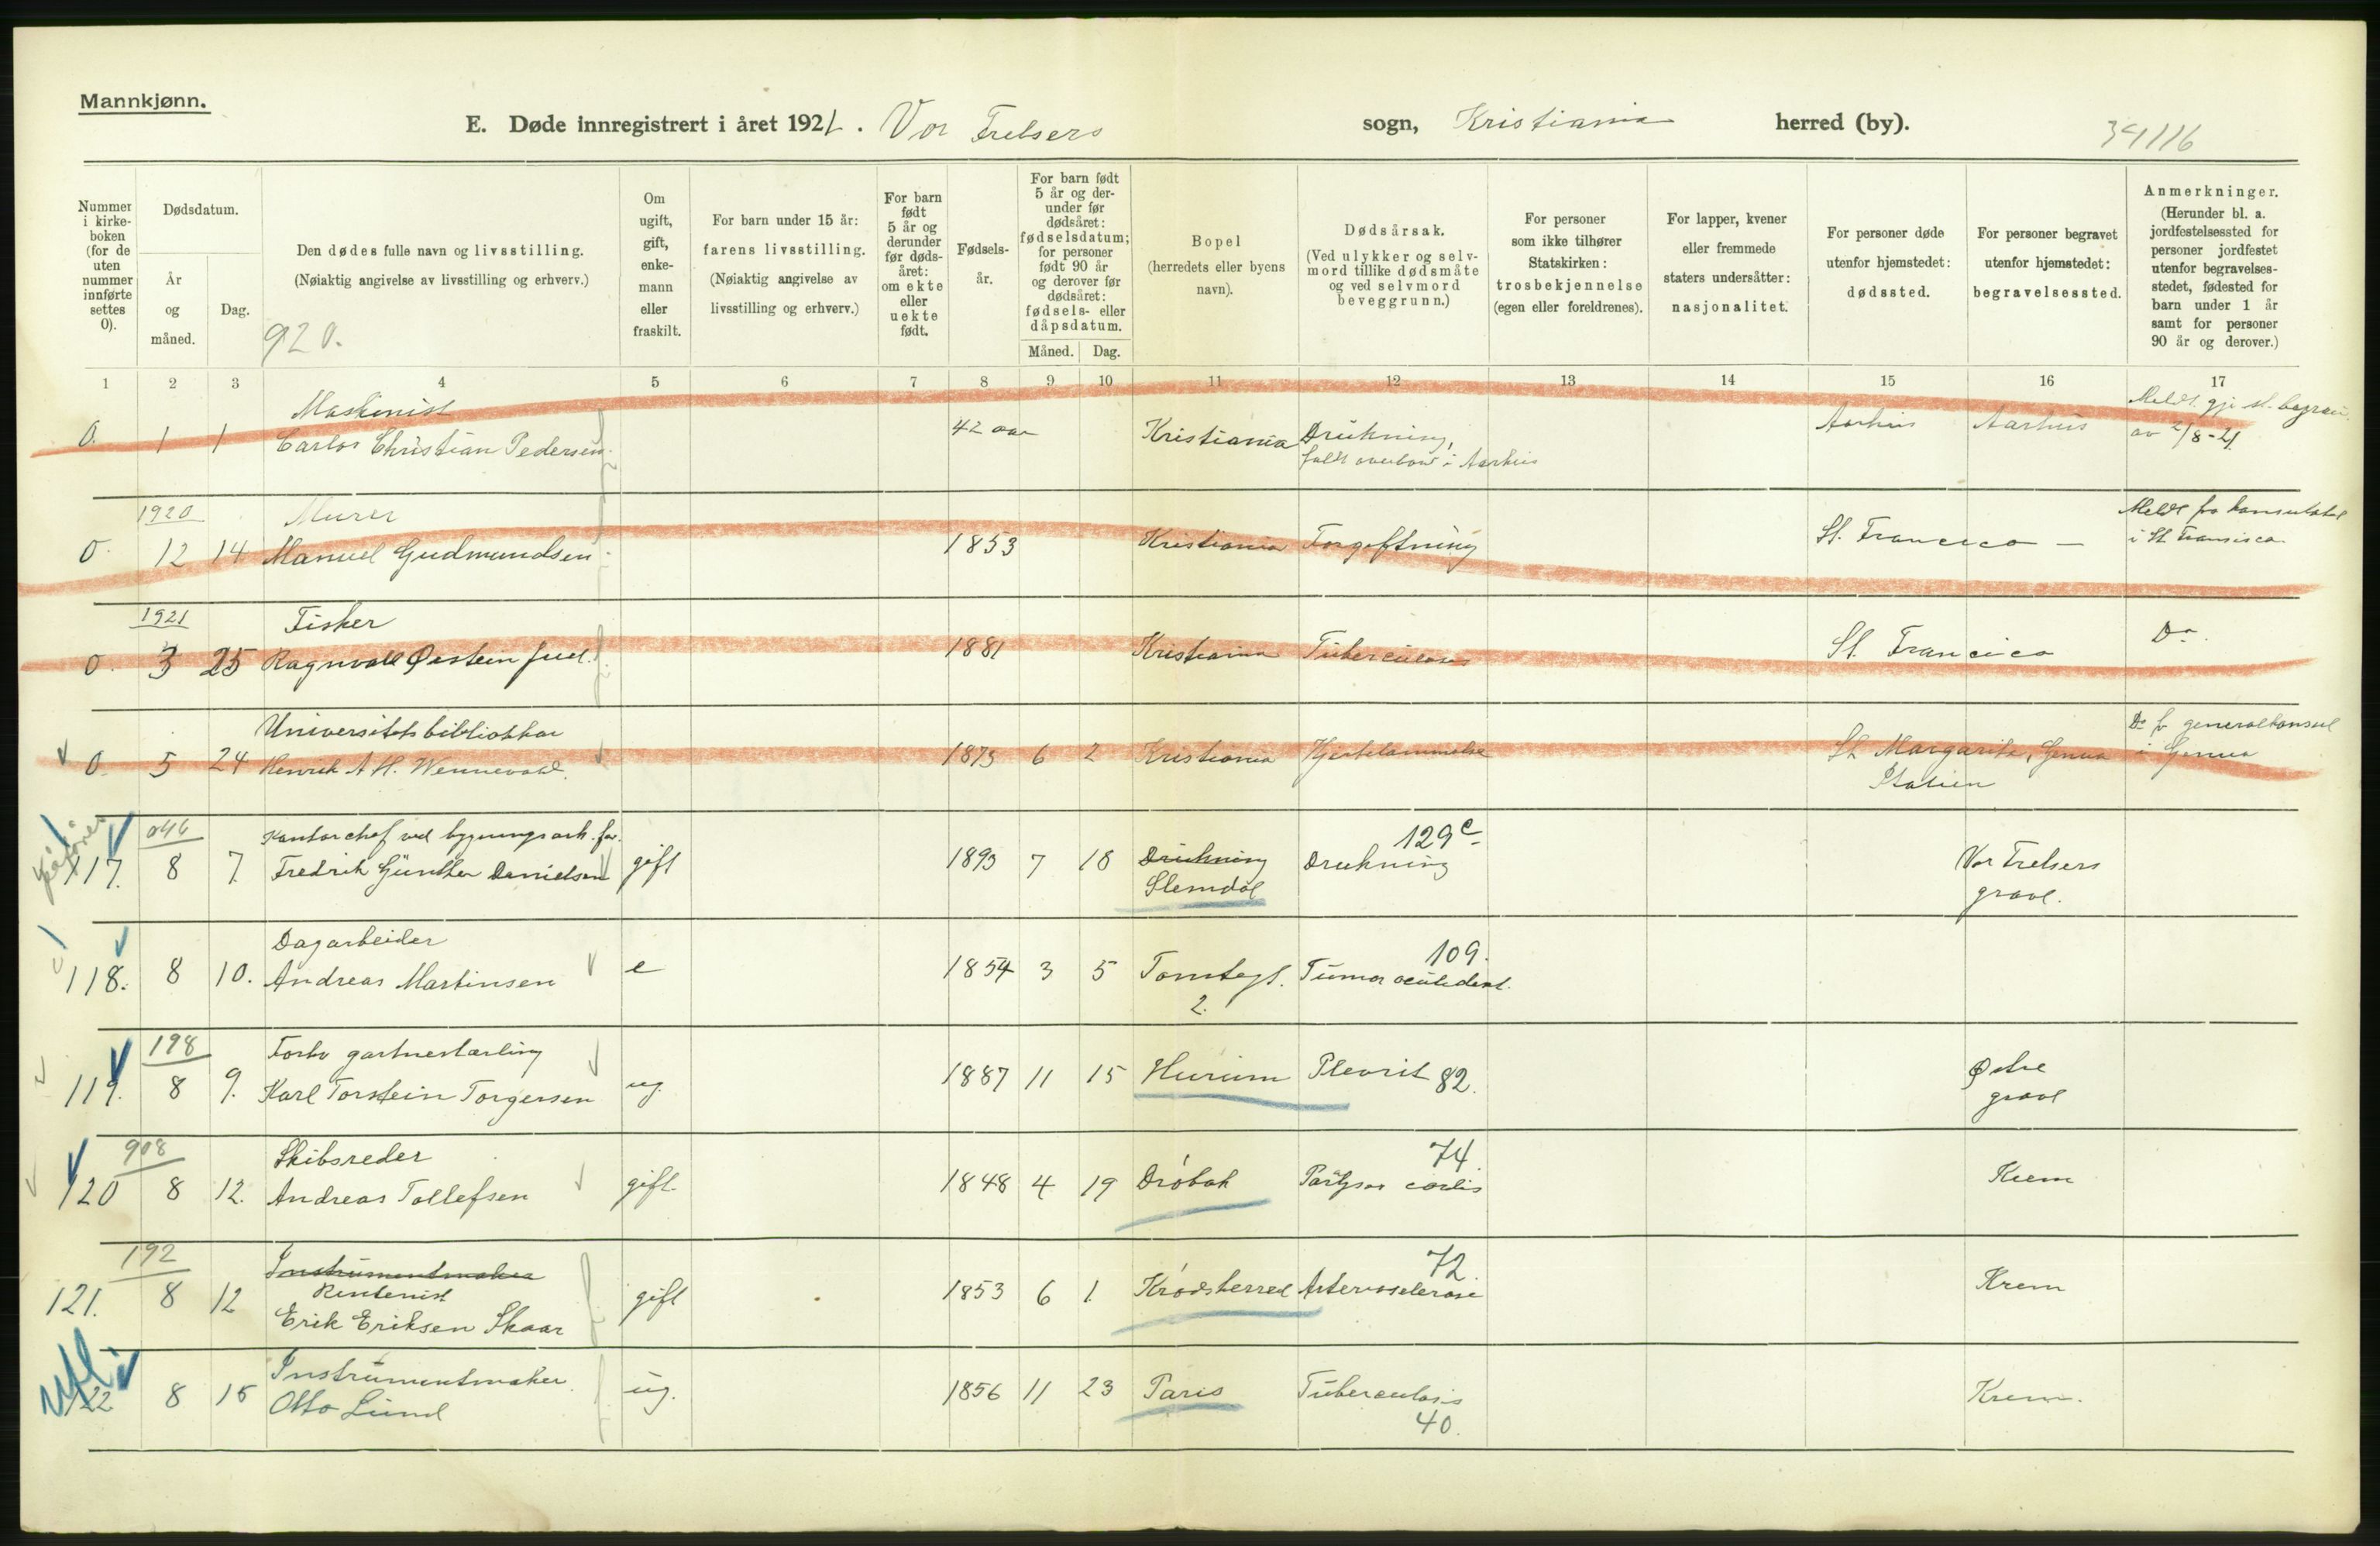 Mannkjønn.
E. Døde innregistrert i året 1921. Vor Frelsers sogn, Kristiania herred (by).
34/116
Nummer i kirkeboken (for de uten nummer innførte settes 0).
Dødsdatum.
År og måned.
Dag.
Den dødes fulle navn og livsstilling.
(Nøiaktig angivelse av livsstilling og erhverv.)
920.
Om ugift, gift, enkemann eller fraskilt.
For barn under 15 år:
farens livsstilling.
(Nøiaktig angivelse av livsstilling og erhverv.)
For barn født 5 år og derunder før dødsåret: om ekte eller uekte født.
Fødselsår.
For barn født 5 år og derunder før dødsåret: fødselsdatum; for personer født 90 år og derover før dødsåret: fødsels- eller dåpsdatum.
Måned. Dag.
Bopel
(herredets eller byens navn).
Dødsårsak.
(Ved ulykker og selvmord tillike dødsmåte og ved selvmord beveggrunn.)
For personer som ikke tilhører Statskirken: trosbekjennelse (egen eller foreldrenes).
For lapper, kvener eller fremmede staters undersåtter: nasjonalitet.
For personer døde utenfor hjemstedet: dødssted.
For personer begravet utenfor hjemstedet: begravelsessted.
Anmerkninger.
(Herunder bl. a. jordfestelsessted for personer jordfestet utenfor begravelsesstedet, fødested for barn under 1 år samt for personer 90 år og derover.)
1 2 3 4 5 6 7 8 9 10 11 12 13 14 15 16 17
Maskinist
0. 1 1 Carlos Christian Pedersen 42 aar Kristiania Drukning, Aarhus Aarhus
faldt overbord i Aarhus
av 2/8-21
1920 Murer
0. 12 14 Manuel Gudmundsen 1853 Kristiania Forgiftning St. Francisco —
Meldt fra konsulatet
i St Francisco
1921 Fisker
0. 3 25 Ragnvald Østein Juel 1881 Kristiania Tuberculose St. Francisco Do.
Universitetsbibliothkar
0. 5 24 Henrik A H. Wennevold 1873 6 2 Kristiania Hjertelammelse St Margarita, Genua
Italien
Do fr generalkonsul
i Genua
046 Kontorchef ved bygningsark. for. 129c
117. 8 7. Fredrik Günther Danielsen gift 1893 7 18 Drukning Drukning Vor Frelsers
Slemdal gravl.
Dagarbeider 109.
118. 8 10. Andreas Martinsen e 1854 3 5 Tomtegt. Tumor
2.
198 Forhv gartnerlærling
119. 8 9. Karl Torstein Torgersen ug. 1887 11 15 Hurum Plevrit 82. Østre
gravl
908 Skibsreder 74.
120 8 12. Andreas Tollefsen gift 1848 4 19 Drøbak Krem
192 Instrumentmaker 72.
Rentenist
121. 8 12 Erik Eriksen Skaar gift 1853 6 1. Krødsherred Arteriosclerose Krem
Instrumentmaker
122 8 15 Otto Lund ug. 1856 11 23 Paris Tuberculosis Krem.
40.